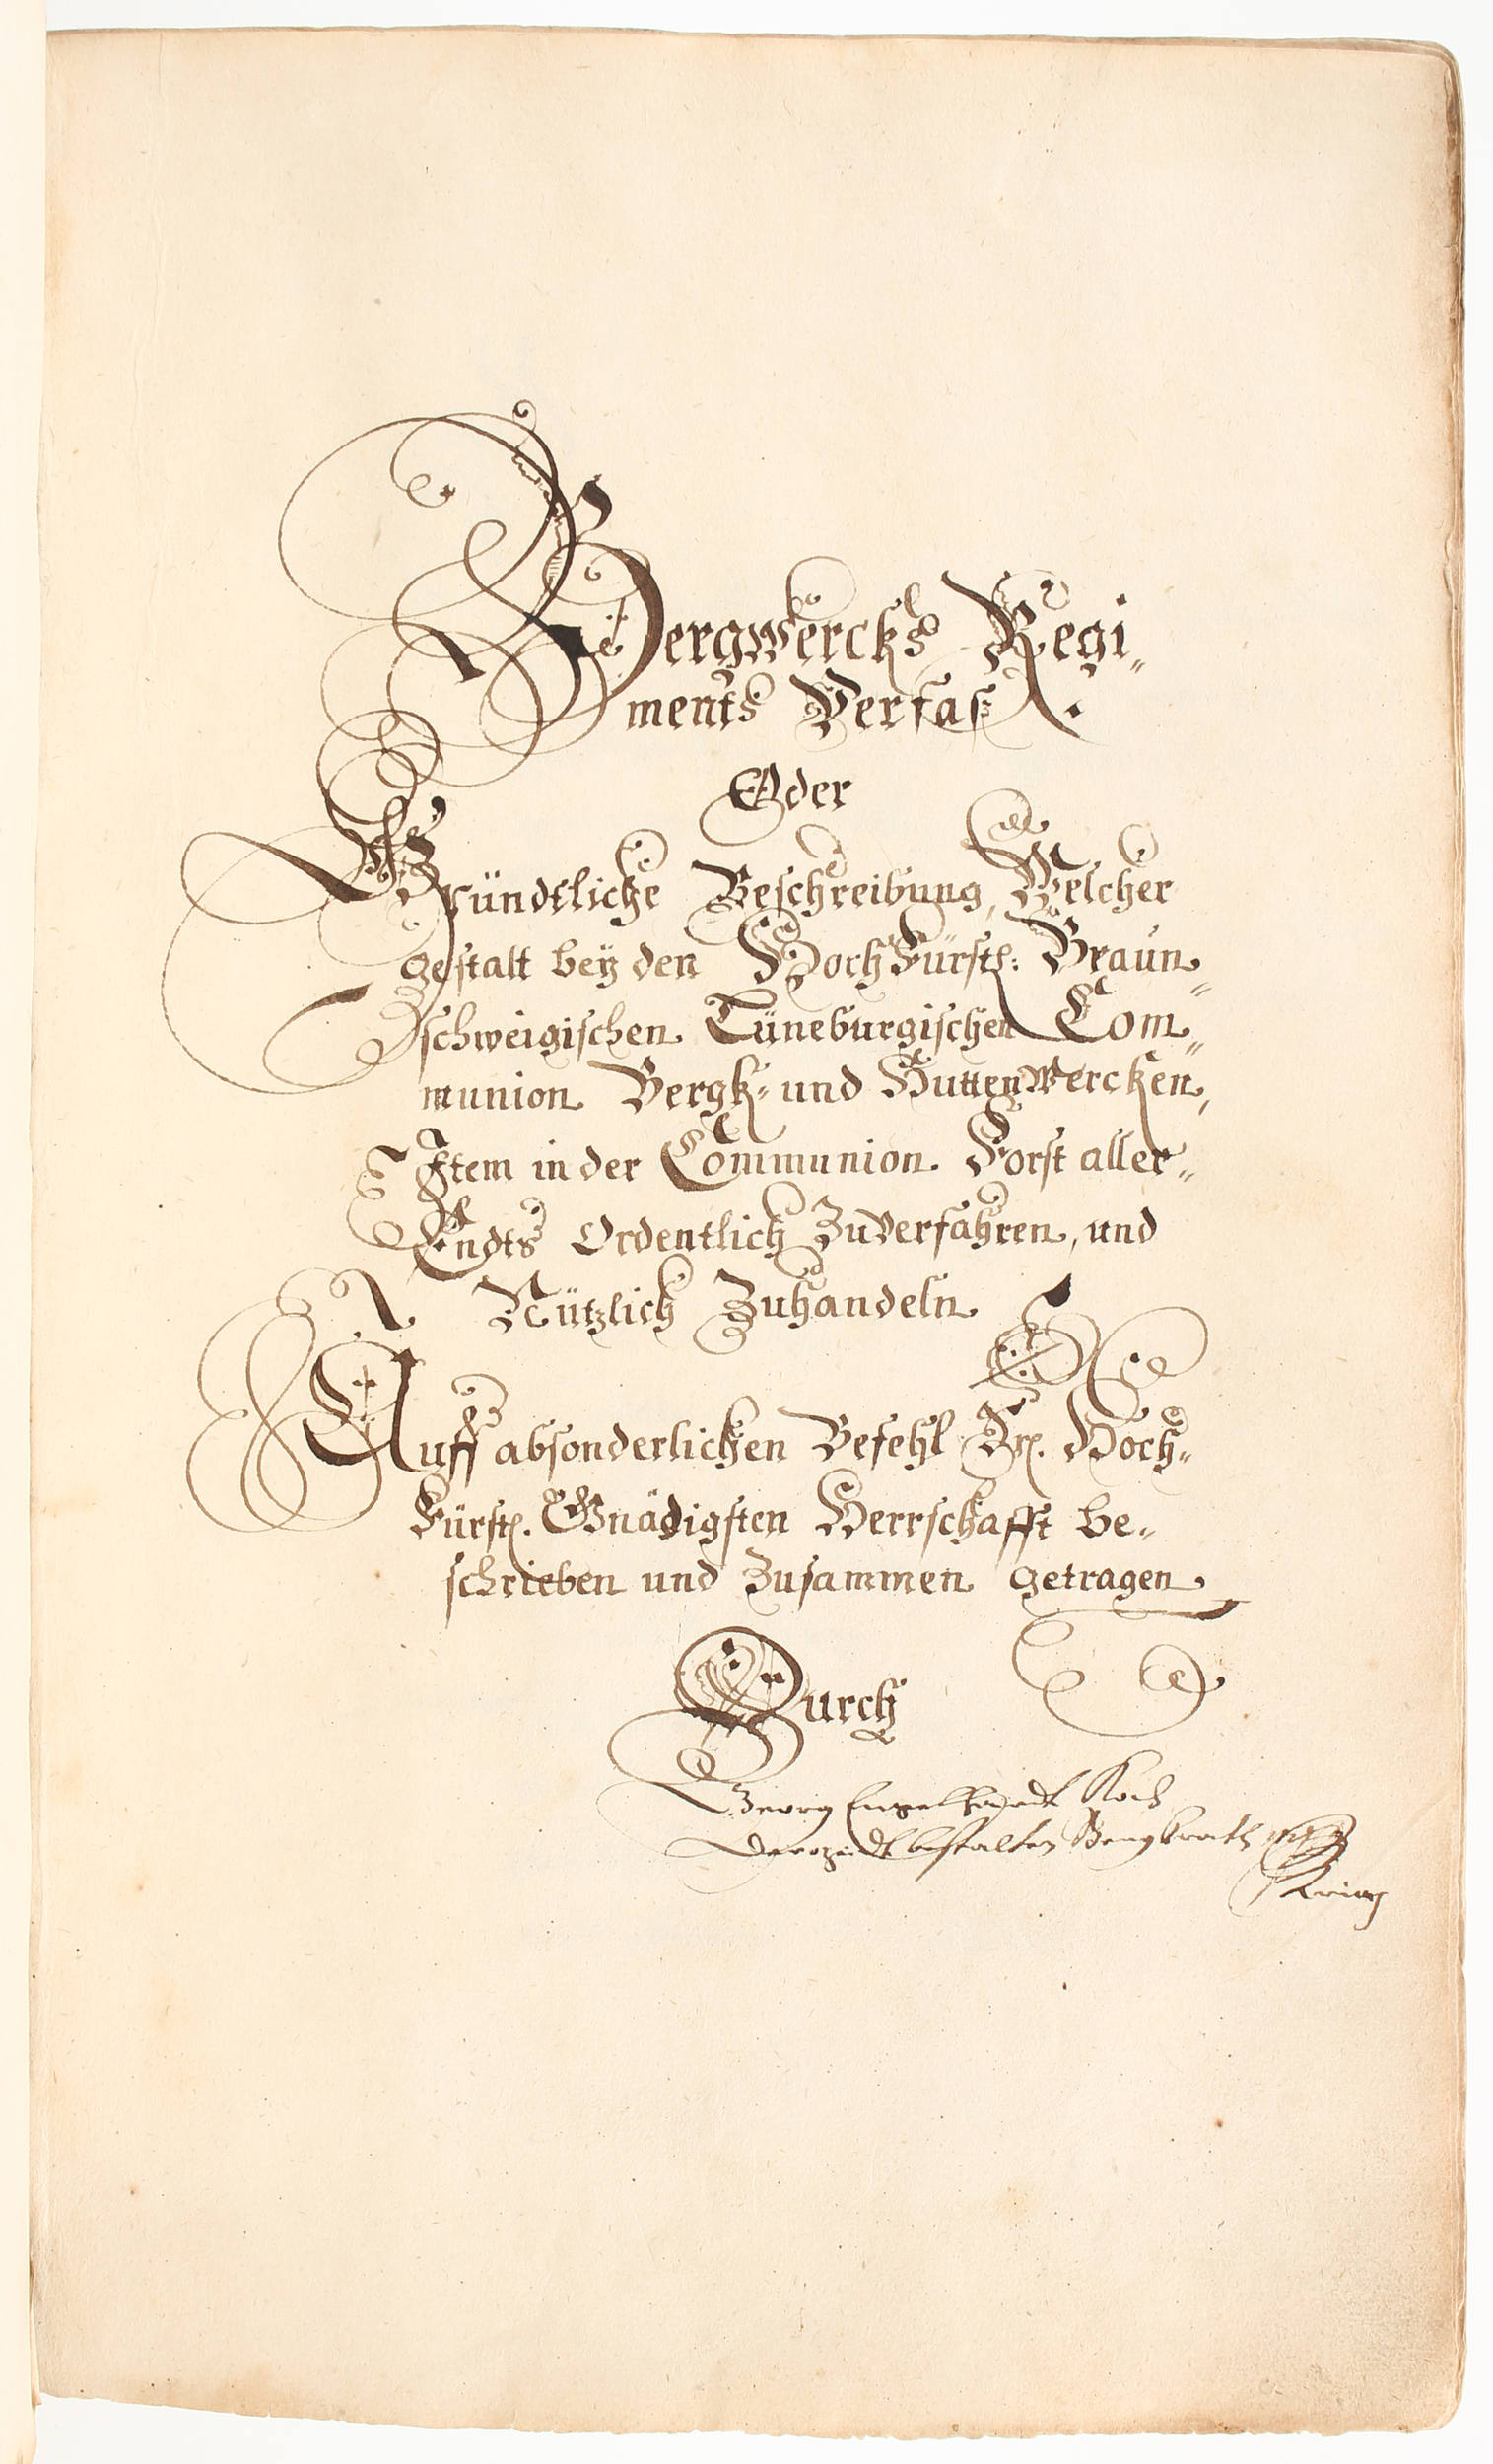 Bergwercks Regi„
ments Verfaß.
Oder
Gründtliche Beschreibung, Welcher
gestalt beӱ den HochFürstl: Braun„
schweigischen Lüneburgischen Com„
munion Bergk„ und HuttenWercken,
Item in der Communion Forst aller„
Endts Ordentlich ZuVerfahren, und
Nützlich Zuhandeln
Auff absonderlichen Befehl Hochs
Fürstl. Gnädigsten Herrschafft be„
schrieben und Zusammen getragen
Durch
Georg Engelhardt
derozeidt bestalten Bergkrath